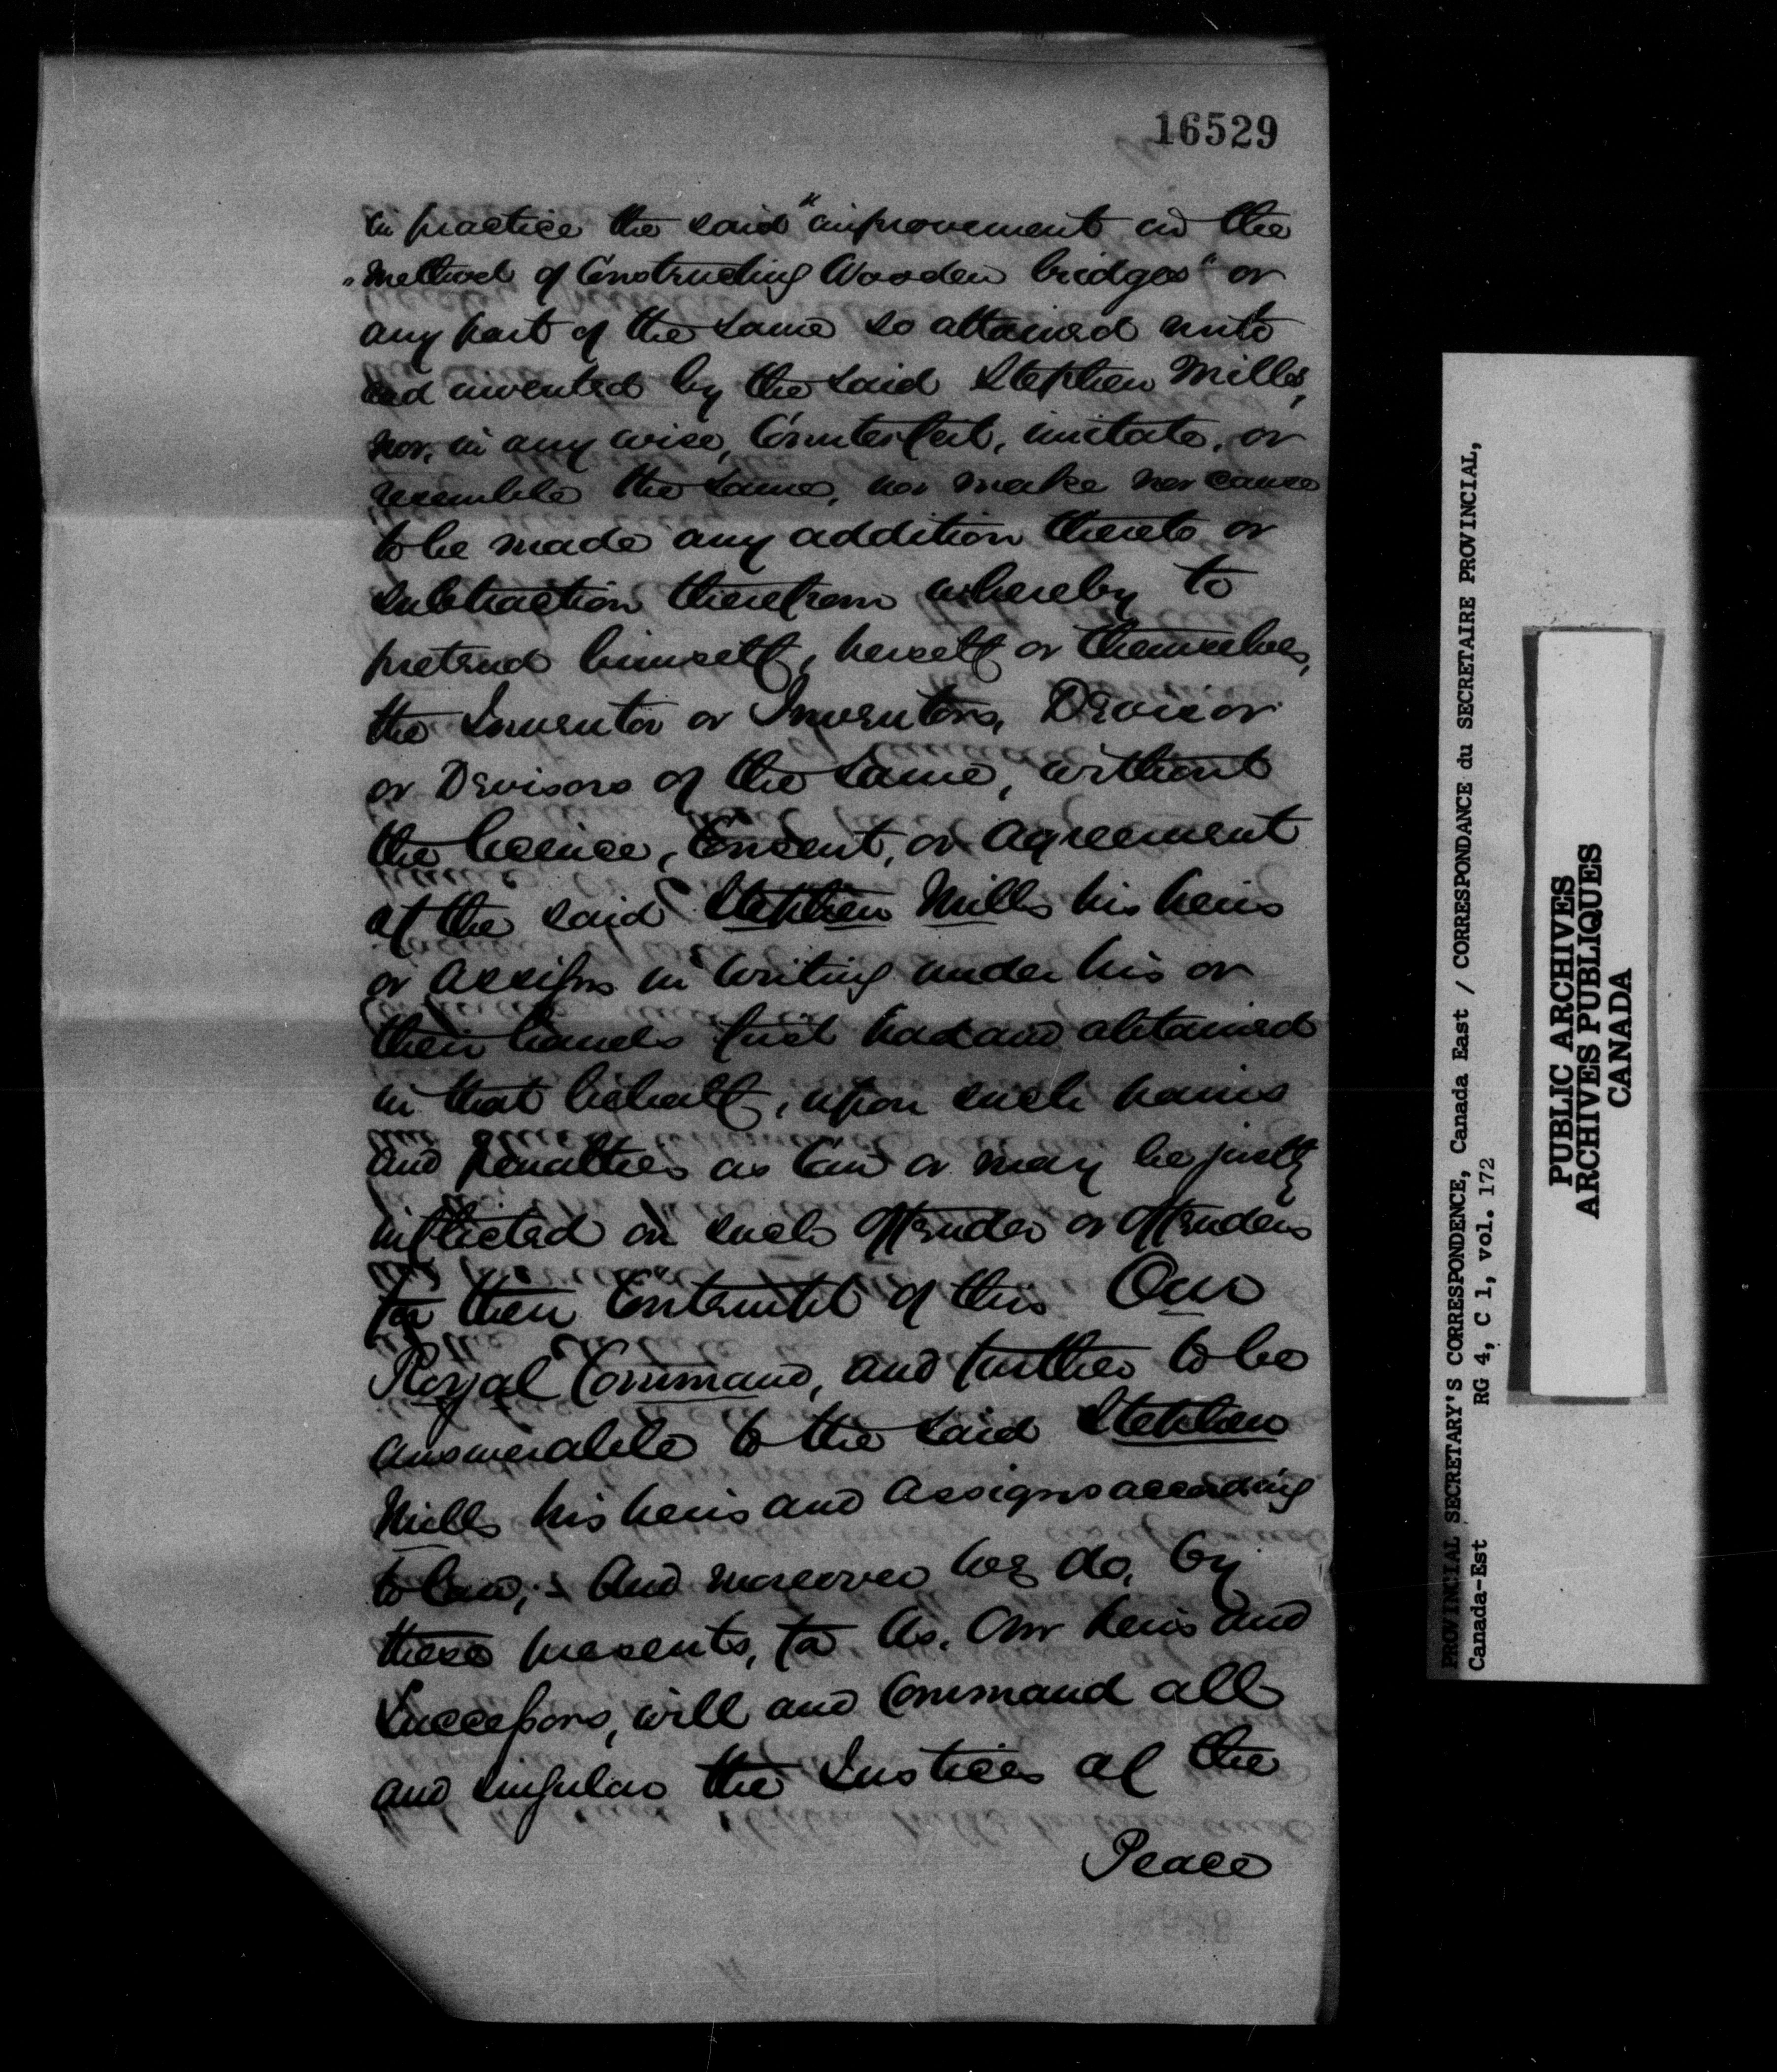 16529
in practice the said "improvement in the
"Method of Constructing Wooden bridges" or
any part of the same so attained unto
and invented by the said Stephen Mills,
nor, in any wise, Counterfeit, imitate, or
resemble the same, nor make nor cause
to be made any addition thereto or
subtraction therefrom whereby to
pretend himself, herself or themselves,
the Inventor or Inventors, Devisor
or Devisors of the same, without
the licence, Consent, or agreement
of the said Stephen Mills his heirs
or assigns in writing under his or
their hands first had and obtained
in that behalf, upon such pains
and penalties as can or may be justly
inflicted on such offender or offenders
for their Contempt of this Our
Royal Command, and further to be
answerable to the said Stephen
Mills his heirs and assigns according
to law; And moreover We do, by
these presents, for Us, Our heirs and
Successors, will and Command all
and singular the Justices of the
Peace
PROVINCIAL SECRETARY'S CORRESPONDENCE, Canada East / CORRESPONDANCE du SECRETAIRE PROVINCIAL,
Canada-Est RG 4, C 1, vol. 172
PUBLIC ARCHIVES
ARCHIVES PUBLIQUES
CANADA